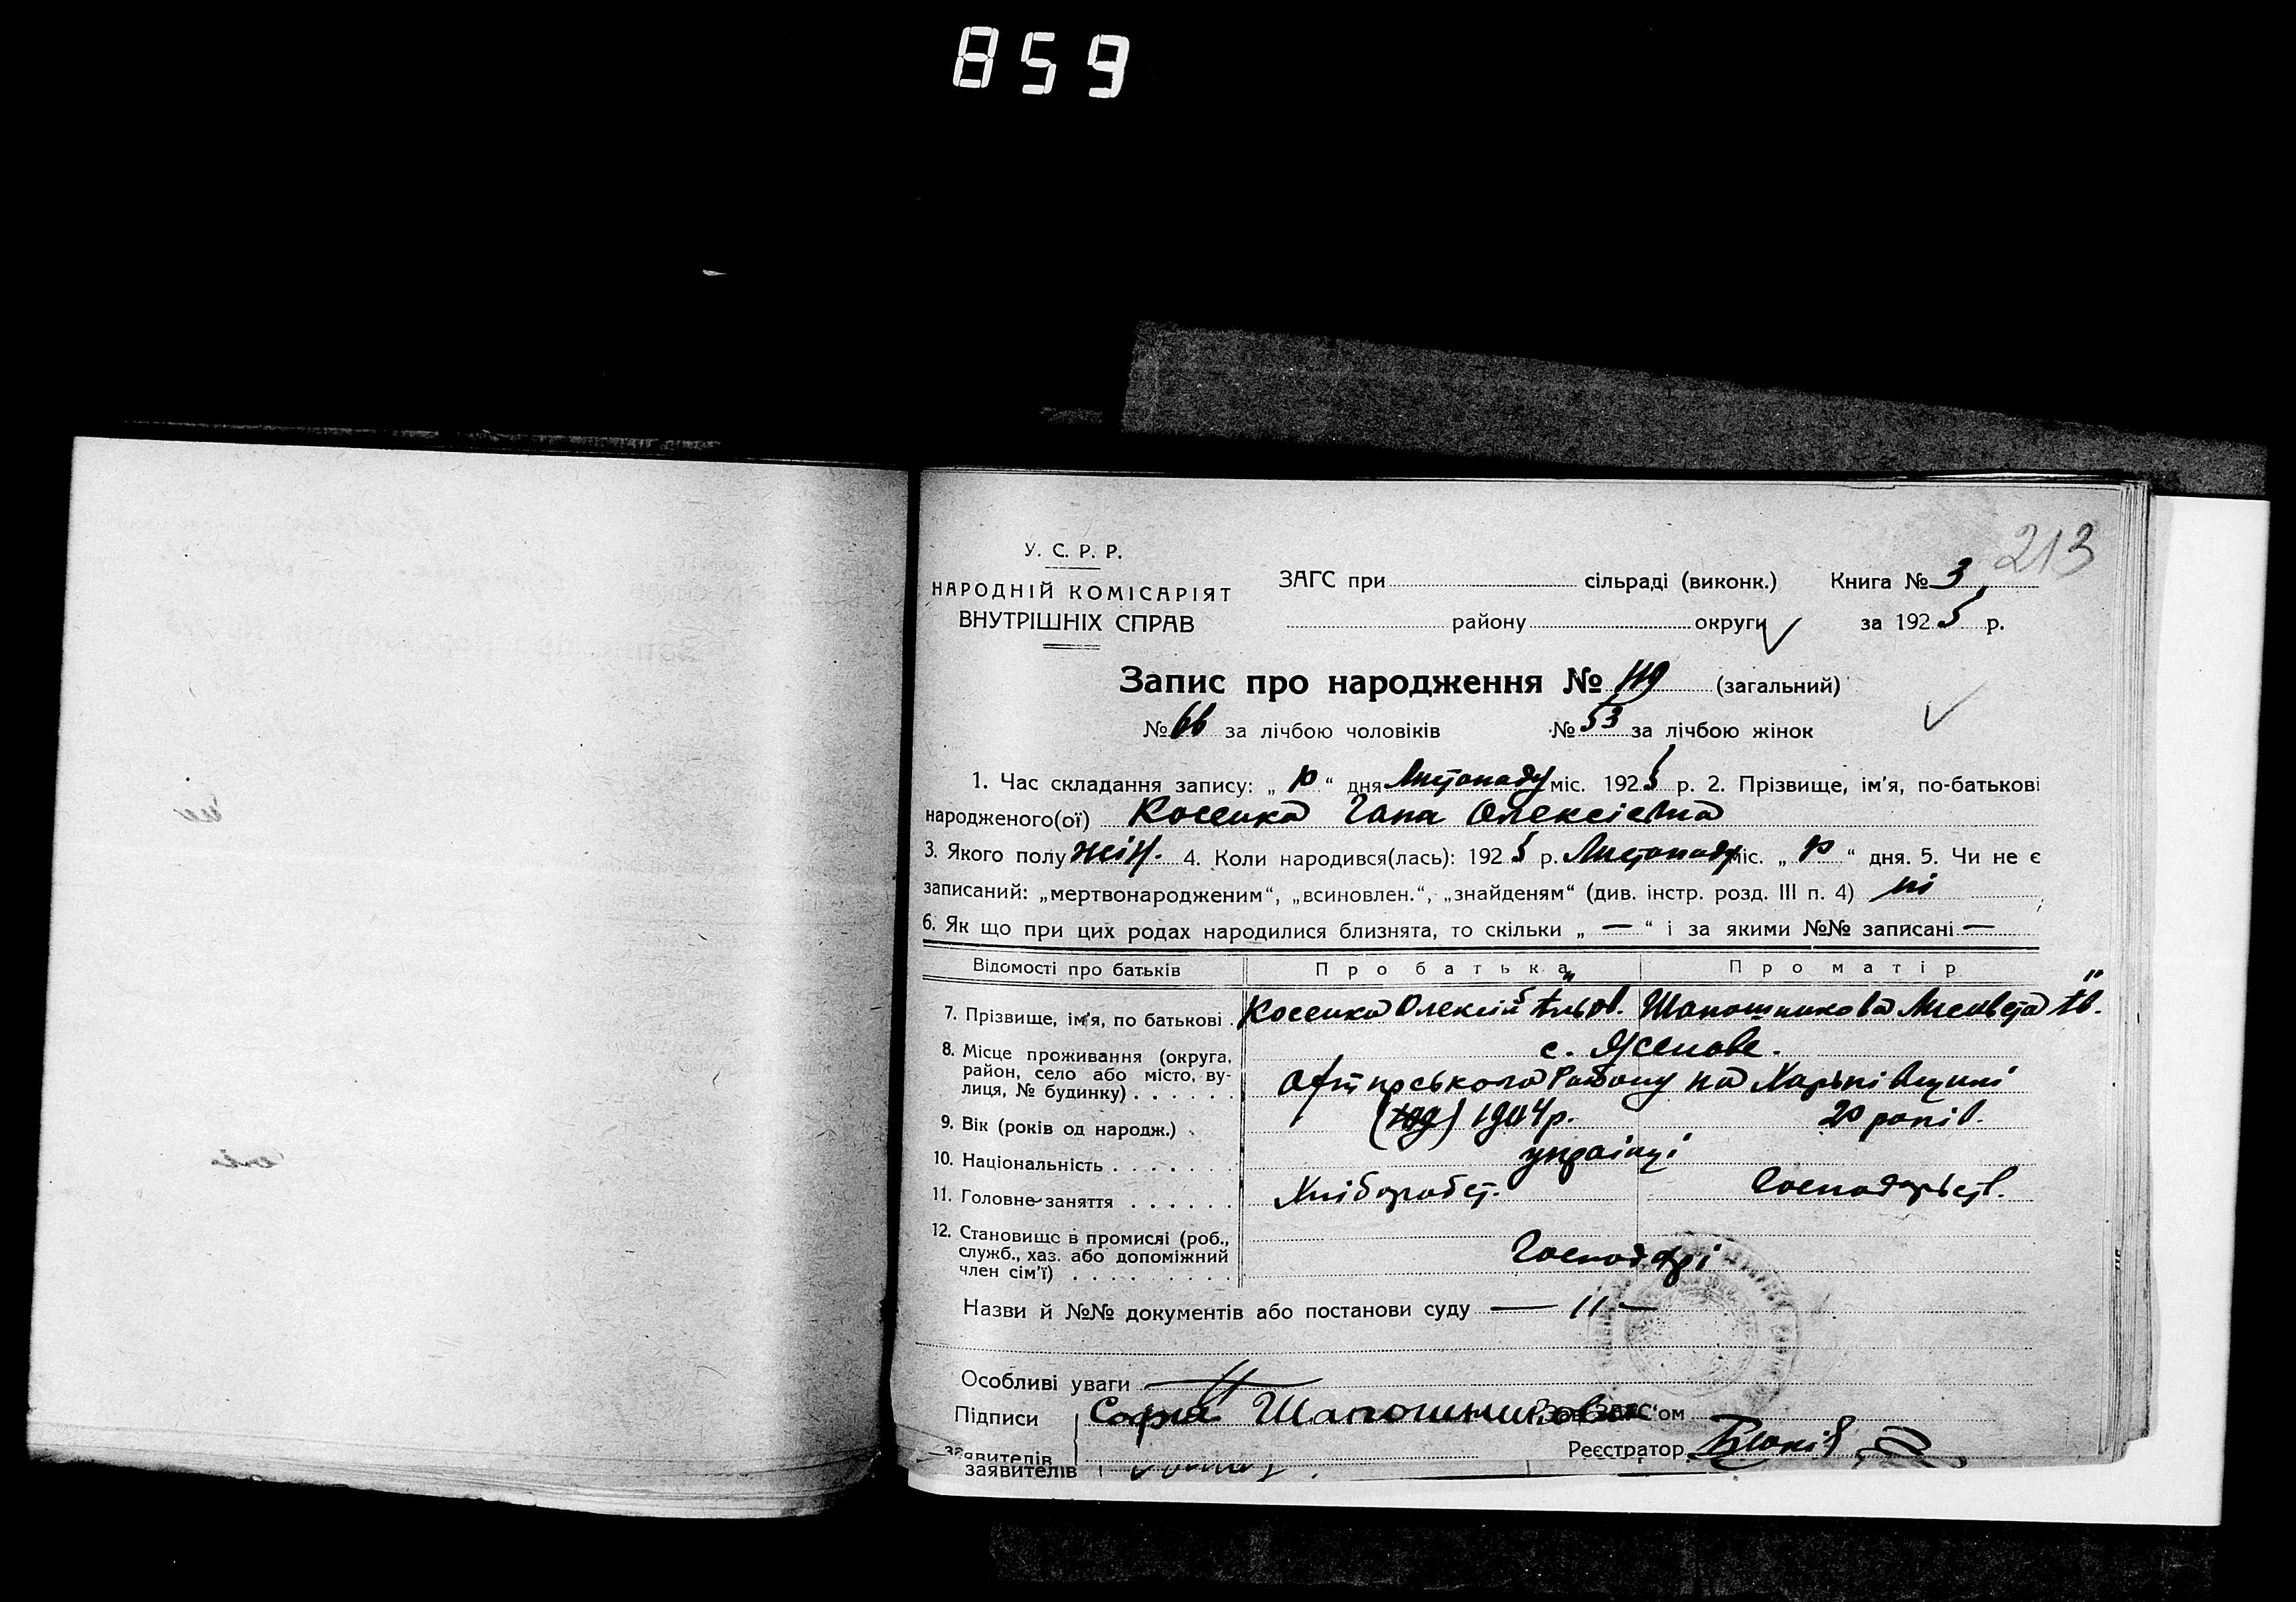 859
213
У. С. Р. Р.
НАРОДНІЙ КОМІСАРІЯТ
ВНУТРІШНІХ СПРАВ
ЗАГС при сільраді (виконк.) Книга № 3
району округи за 1925 р.
Запис про народження № 119 (загальний)
№ 66 за лічбою чоловіків № 53 за лічбою жінок
1. Час складання запису: „ “ дня Листопаду міс. 1925 р. 2. Прізвище, ім'я, по-батькові
народженого(ої) Косенко Гапа Олексіевна
3. Якого полу жін. 4. Коли народився(лась): 1925 р. Листопаду міс. „ “ дня. 5. Чи не є
записаний: „мертвонародженим“, „всиновлен.“, „знайденям“ (див. інстр. розд. III п. 4) ні
6. Як що при цих родах народилися близнята, то скільки „ — “ і за якими №№ записані —
Відомості про батьків Про батька Про матір
7. Прізвище, ім'я, по батькові Косенко Олексій Шапошникова Лисавета Ів.
8. Місце проживання (округа, с. Ясенове.
район, село або місто, ву-
лиця, № будинку) Охтирського Району на Харьківщині
9. Вік (років од народж.) 1904 р. 20 років.
10. Національність українці
11. Головне заняття Хлібороб Господарьств.
12. Становище в промислі (роб.,
служб., хаз. або допоміжний Господарі
член сім'ї)
Назви й №№ документів або постанови суду — 11 —
Особливі уваги
Підписи Софія Шапошникова Зав. ЗАГС'ом
заявителів Реєстратор
заявителів